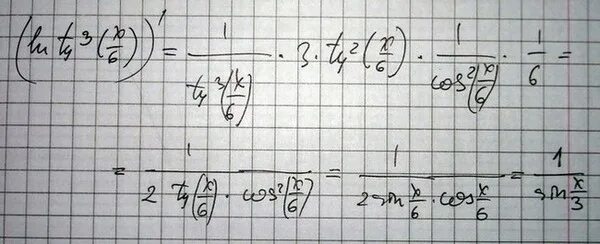 (ln tg³(x/6))' = 1/(tg³(x/6)) · 3 · tg²(x/6) · 1/(cos²(x/6)) · 1/6 =
= 1/(2 tg(x/6) · cos²(x/6)) = 1/(2 sin x/6 · cos x/6) = 1/(sin x/3)